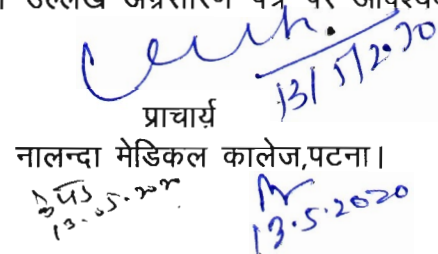 उल्लेख अग्रसारण पत्र पर
13/5/2020
प्राचार्य
नालन्दा मेडिकल कालेज,पटना।
13.05.2020
13.5.2020